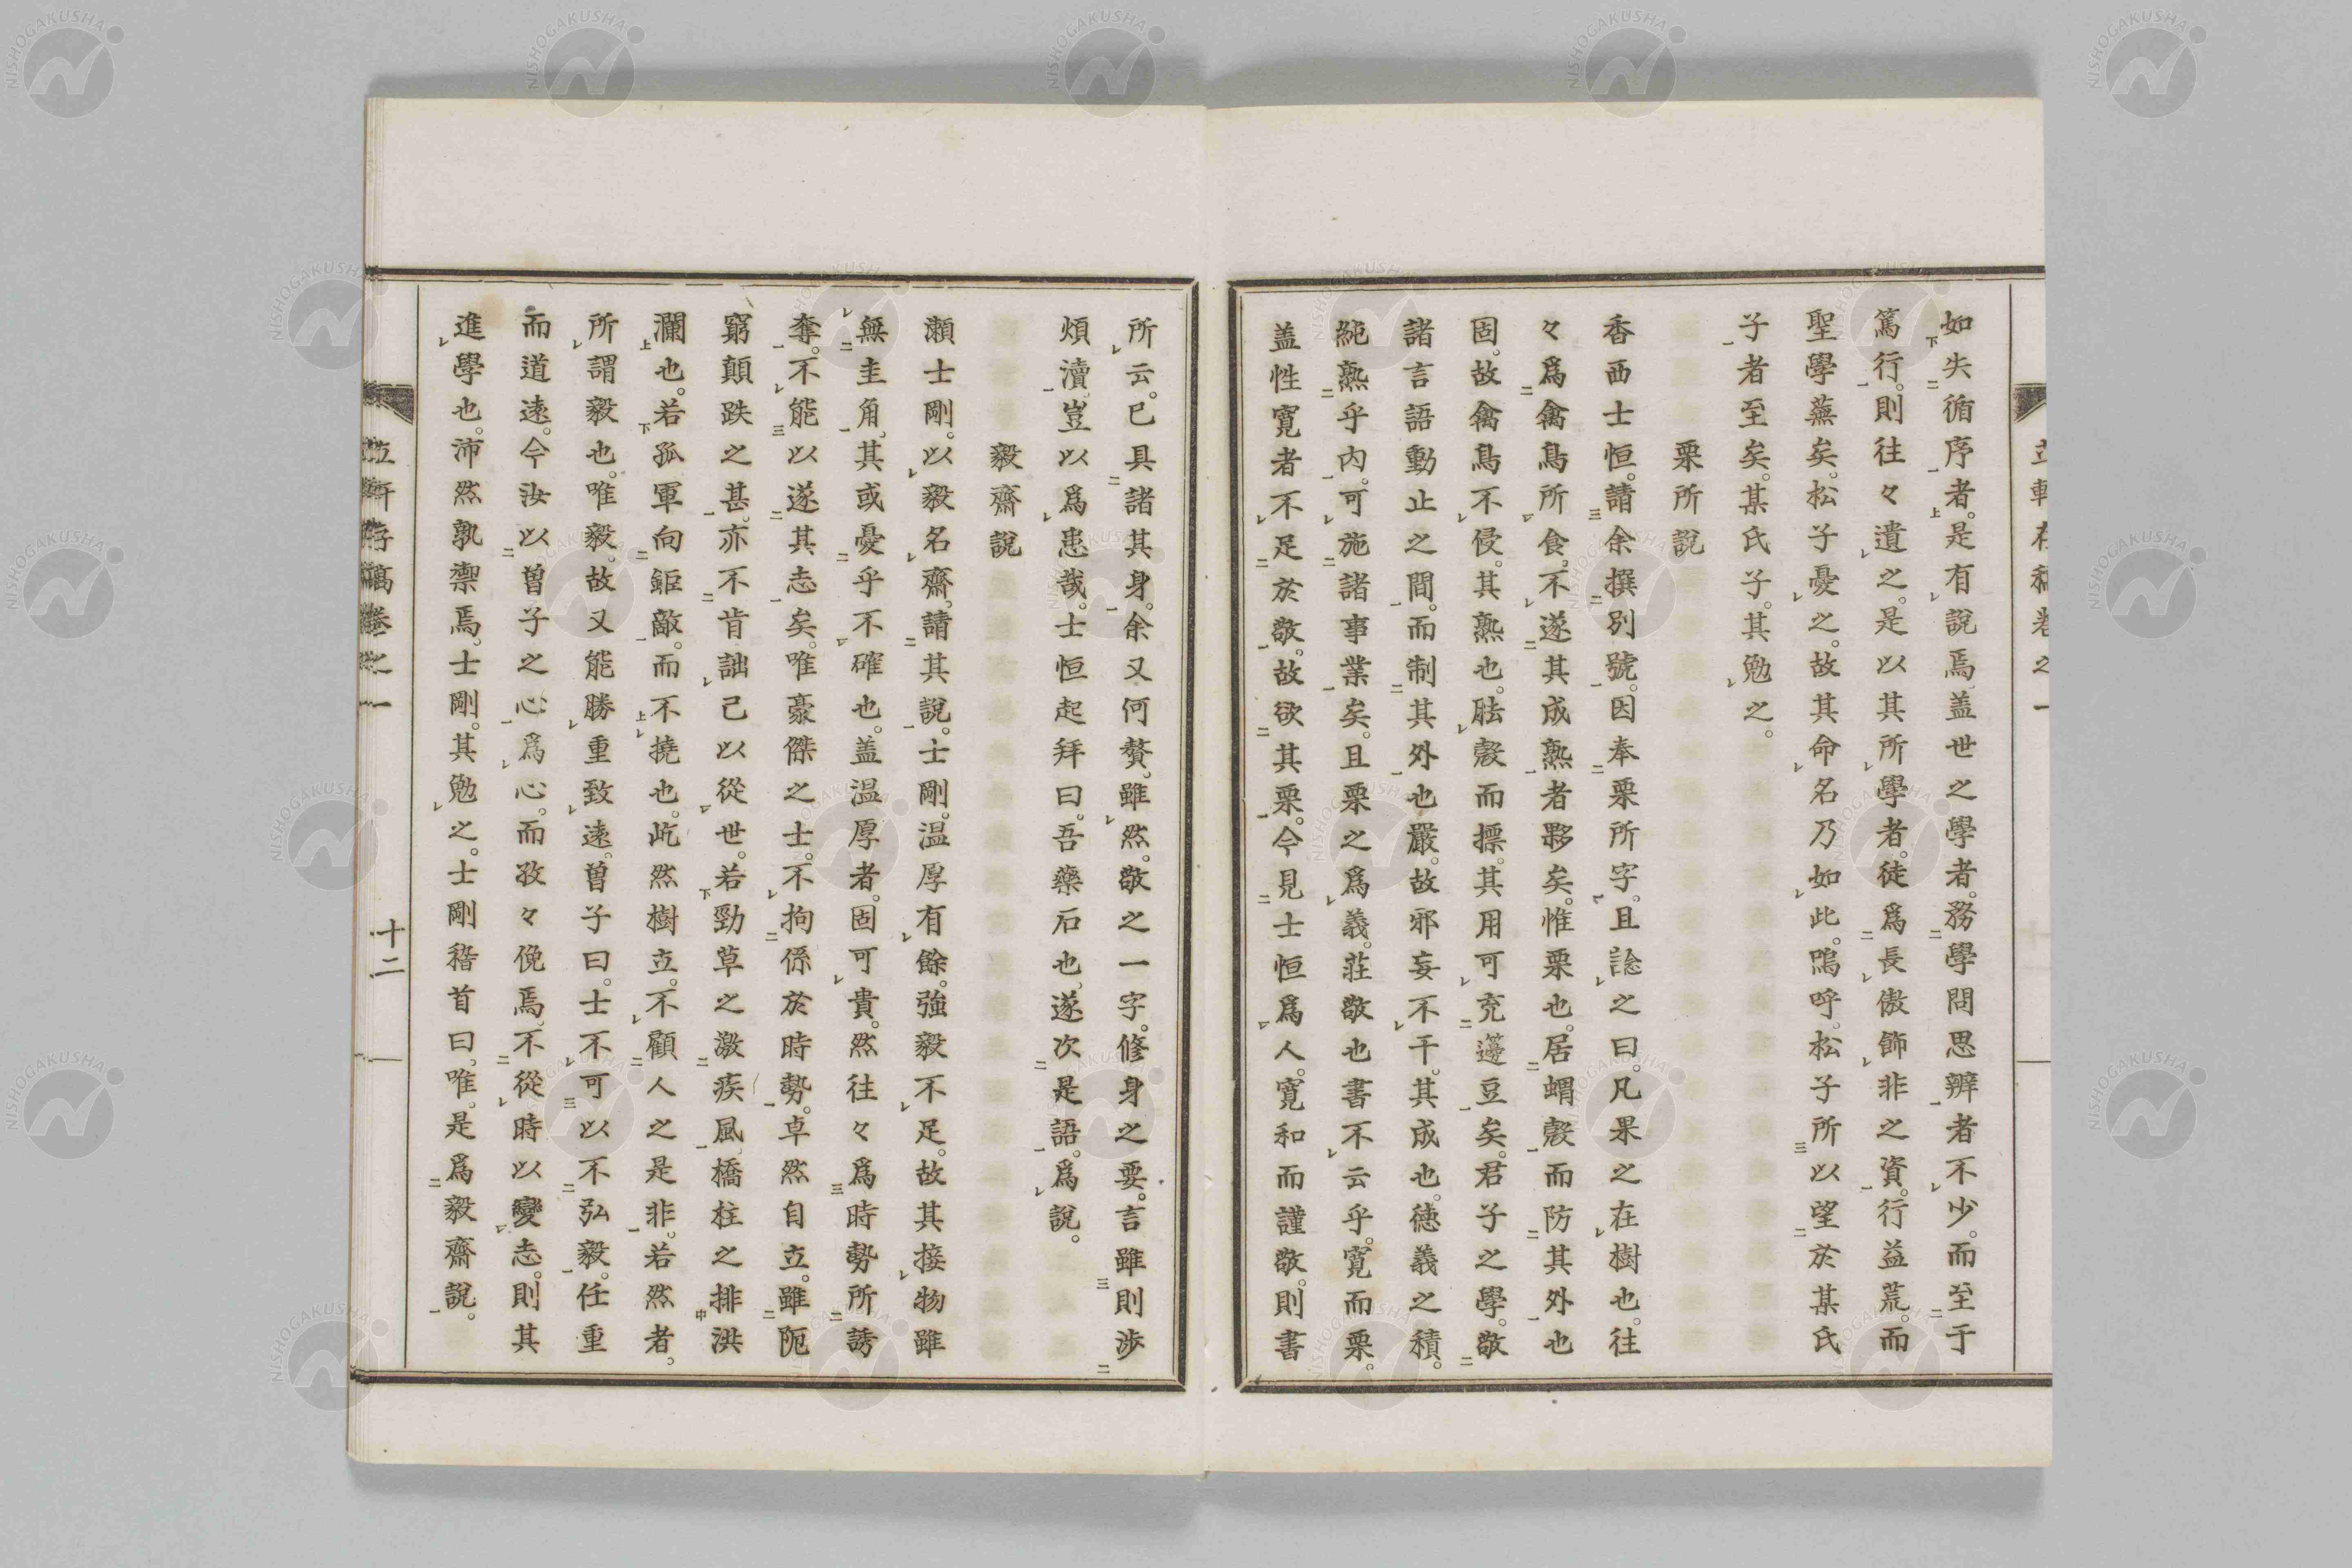 如失循序者。是有説焉。盖世之學者。務學問思辨者不少。而至于
篤行。則往々遺之。是以其所學者。徒爲長傲飾非之資。行益荒。而
聖學蕪矣。松子憂之。故其命名乃如此。嗚呼。松子所以望於某氏
子者至矣。某氏子。其勉之。
栗所説
香西士恒。請余撰別號。因奉栗所字。且諗之曰。凡果之在樹也。往
々爲禽鳥所食。不遂其成熟者夥矣。惟栗也。居蝟殼而防其外也
固。故禽鳥不侵。其熟也。胠殼而摽。其用可充籩豆矣。君子之學。敬
諸言語動止之間。而制其外也嚴。故邪妄不干。其成也。德義之積。
純熟乎内。可施諸事業矣。且栗之爲義。莊敬也書不云乎。寬而栗。
盖性寬者不足於敬。故欲其栗。今見士恒爲人。寬和而謹敬。則書
所云。已具諸其身。余又何贅。雖然。敬之一字。修身之要。言雖則渉
煩瀆。豈以爲患哉。士恒起拜曰。吾藥石也。遂次是語。爲説。
毅齋説
瀬士剛。以毅名齋。請其説。士剛。温厚有餘。強毅不足。故其接物雖
無圭角。其或憂乎不確也。盖温厚者。固可貴。然往々爲時勢所誘
奪。不能以遂其志矣。唯豪傑之士。不拘係於時勢。卓然自立。雖阨
窮顛跌之甚。亦不肯詘己以從世。若勁草之激疾風。橋柱之排洪
瀾也。若孤軍向鉅敵。而不撓也。屹然樹立。不顧人之是非。若然者。
所謂毅也。唯毅。故又能勝重致遠。曽子曰。士不可以不弘毅。任重
而道遠。今汝以曽子之心爲心。而孜々俛焉。不從時以變志。則其
進學也。沛然孰禦焉。士剛。其勉之。士剛稽首曰。唯。是爲毅齋説。
十二